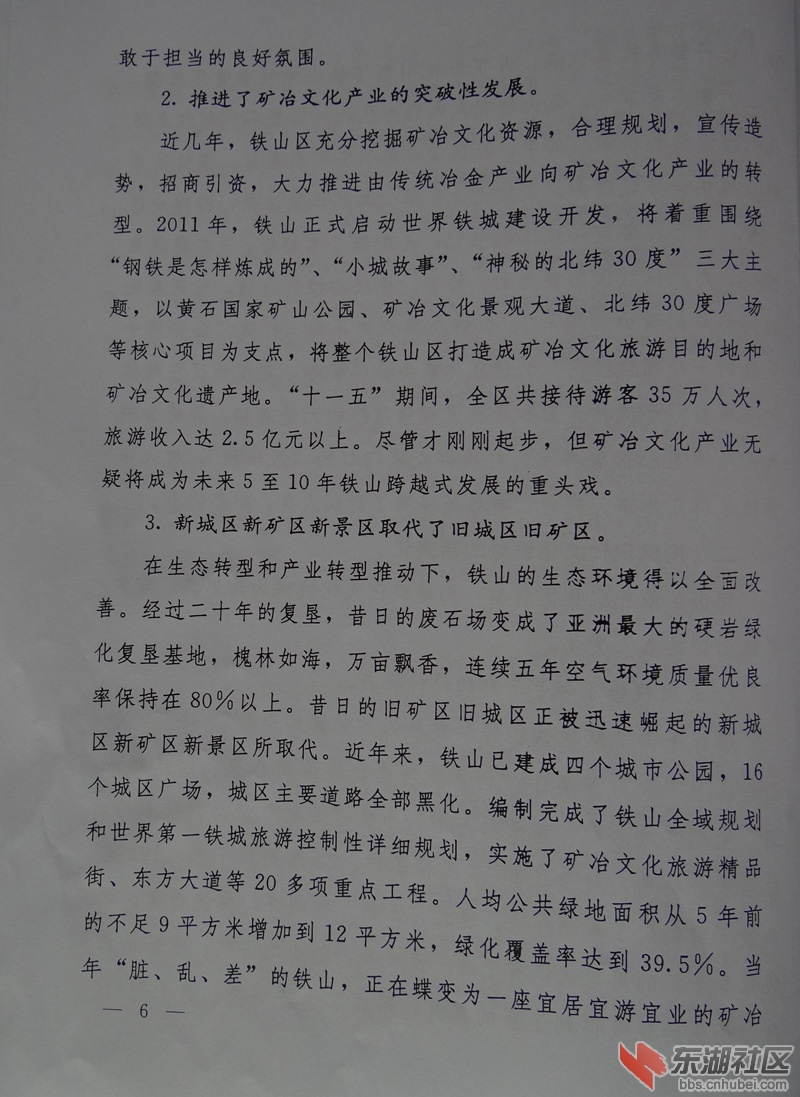 敢于担当的良好氛围。
2. 推进了矿冶文化产业的突破性发展。
近几年，铁山区充分挖掘矿冶文化资源，合理规划，宣传造
势，招商引资，大力推进由传统冶金产业向矿冶文化产业的转
型。2011年，铁山正式启动世界铁城建设开发，将着重围绕
“钢铁是怎样炼成的”、“小城故事”、“神秘的北纬30度”三大主
题，以黄石国家矿山公园、矿冶文化景观大道、北纬30度广场
等核心项目为支点，将整个铁山区打造成矿冶文化旅游目的地和
矿冶文化遗产地。“十一五”期间，全区共接待游客35万人次，
旅游收入达2.5亿元以上。尽管才刚刚起步，但矿冶文化产业无
疑将成为未来5至10年铁山跨越式发展的重头戏。
3. 新城区新矿区新景区取代了旧城区旧矿区。
在生态转型和产业转型推动下，铁山的生态环境得以全面改
善。经过二十年的复垦，昔日的废石场变成了亚洲最大的硬岩绿
化复垦基地，槐林如海，万亩飘香，连续五年空气环境质量优良
率保持在80％以上。昔日的旧矿区旧城区正被迅速崛起的新城
区新矿区新景区所取代。近年来，铁山已建成四个城市公园，16
个城区广场，城区主要道路全部黑化。编制完成了铁山全域规划
和世界第一铁城旅游控制性详细规划，实施了矿冶文化旅游精品
街、东方大道等20多项重点工程。人均公共绿地面积从5年前
的不足9平方米增加到12平方米，绿化覆盖率达到39.5％。当
年“脏、乱、差”的铁山，正在蝶变为一座宜居宜游宜业的矿冶
— 6 —
东湖社区
bbs.cnhubei.com